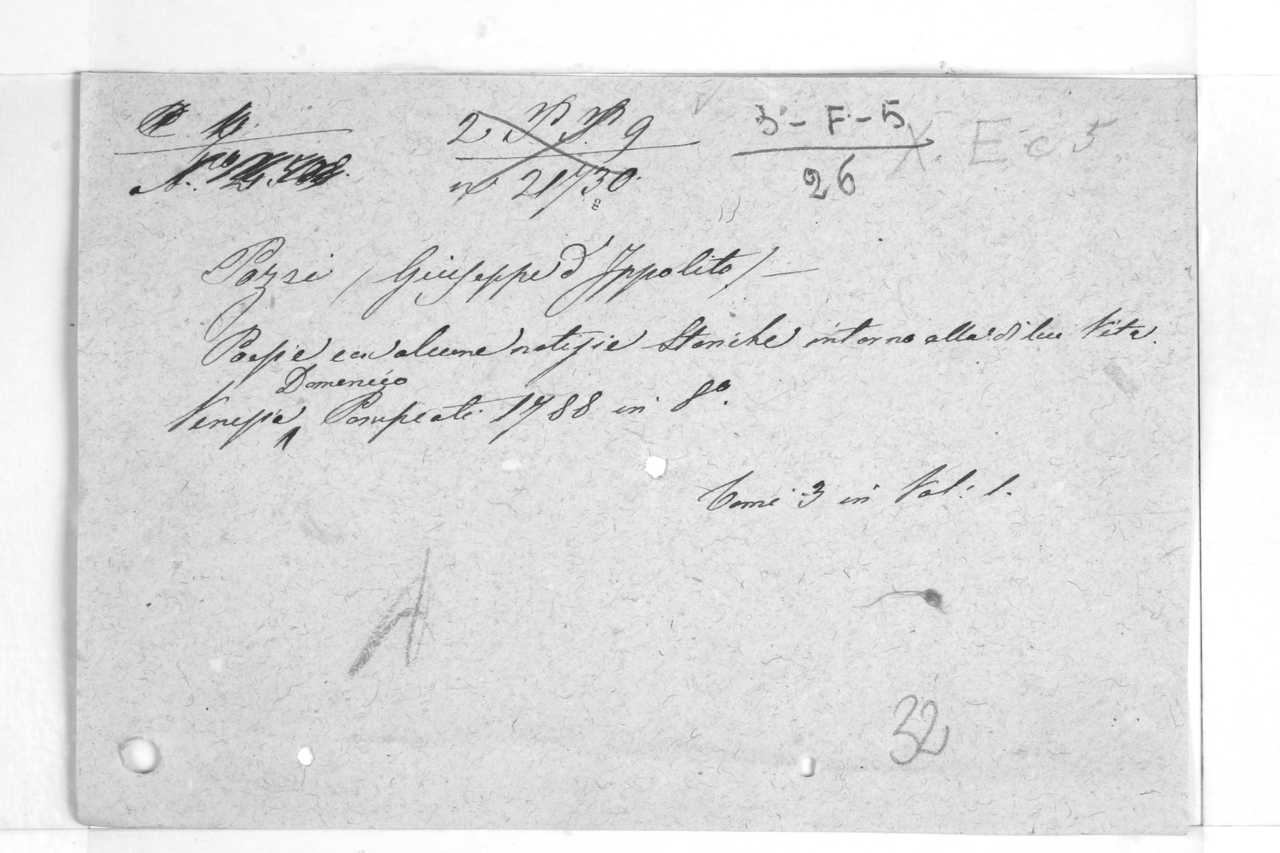 2 P. P. 9
n.º 21730.
5 - F - 5
26
X. E c 5
Pozzi / Giuseppe d'Ippolito / —
Poesie con alcune notizie Storiche intorno alla di lui Vita.
Domenico
Venezia Pompeati 1788 in 8º.
Tomi 3 in Vol: 1.
A
32